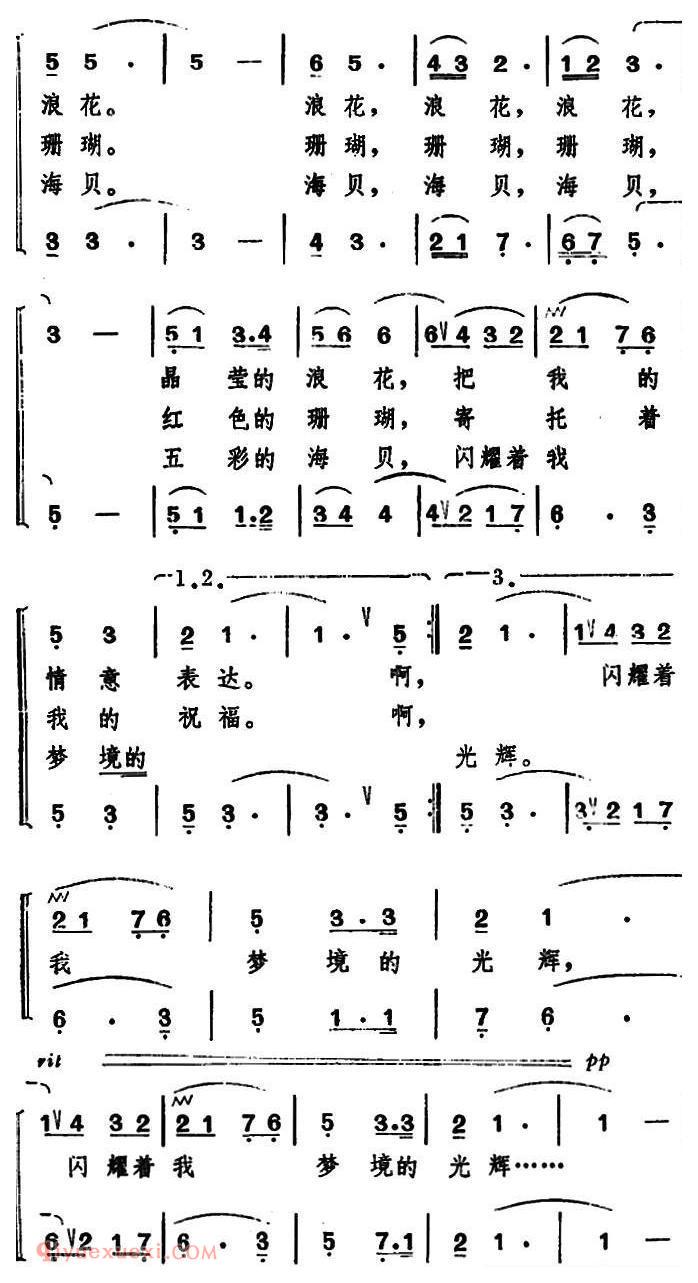 5 5 · | 5 — | 6 5 · | 4 3 2 · | 1 2 3 ·
浪花。 浪花，浪花，浪花，
珊瑚。 珊瑚，珊瑚，珊瑚，
海贝。 海贝，海贝，海贝，
3 3 · | 3 — | 4 3 · | 2 1 7 · | 6 7 5 ·
3 — | 5 1 3·4 | 5 6 6 | 6 V 4 3 2 | 2 1 7 6
晶莹的浪花，把我的
红色的珊瑚，寄托着
五彩的海贝，闪耀着我
5 — | 5 1 1·2 | 3 4 4 | 4 V 2 1 7 | 6 · 3
1.2. 3.
5 3 | 2 1 · | 1 · V 5 :| 2 1 · | 1 V 4 3 2
情意表达。 啊， 闪耀着
我的祝福。 啊，
梦境的 光辉。
5 3 | 5 3 · | 3 · V 5 :| 5 3 · | 3 V 2 1 7
2 1 7 6 | 5 3·3 | 2 1 ·
我 梦境的光辉，
6 · 3 | 5 1·1 | 7 6 ·
rit pp
1 V 4 3 2 | 2 1 7 6 | 5 3·3 | 2 1 · | 1 —
闪耀着我 梦境的光辉……
6 V 2 1 7 | 6 · 3 | 5 7·1 | 2 1 · | 1 —